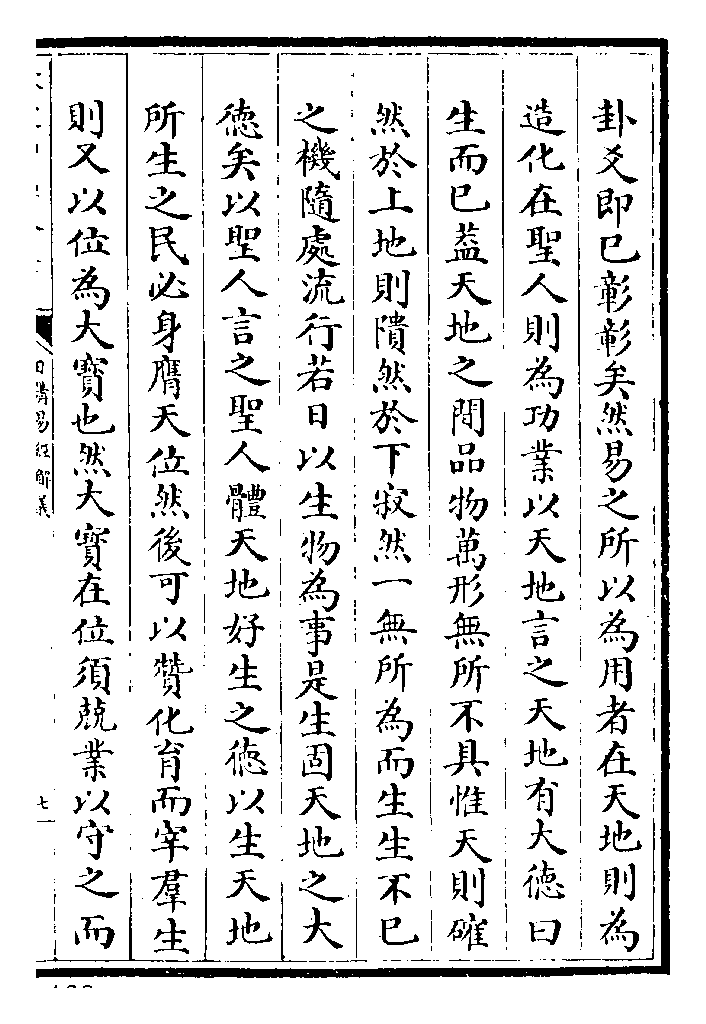 卦爻即已彰彰矣然易之所以為用者在天地則為
造化在聖人則為功業以天地言之天地有大德曰
生而已葢天地之間品物萬形無所不具惟天則確
然於上地則隤然於下寂然一無所為而生生不已
之機隨處流行若日以生物為事是生固天地之大
德矣以聖人言之聖人體天地好生之德以生天地
所生之民必身膺天位然後可以贊化育而宰羣生
則又以位為大寶也然大寶在位須兢業以守之而
日講易經解義
七